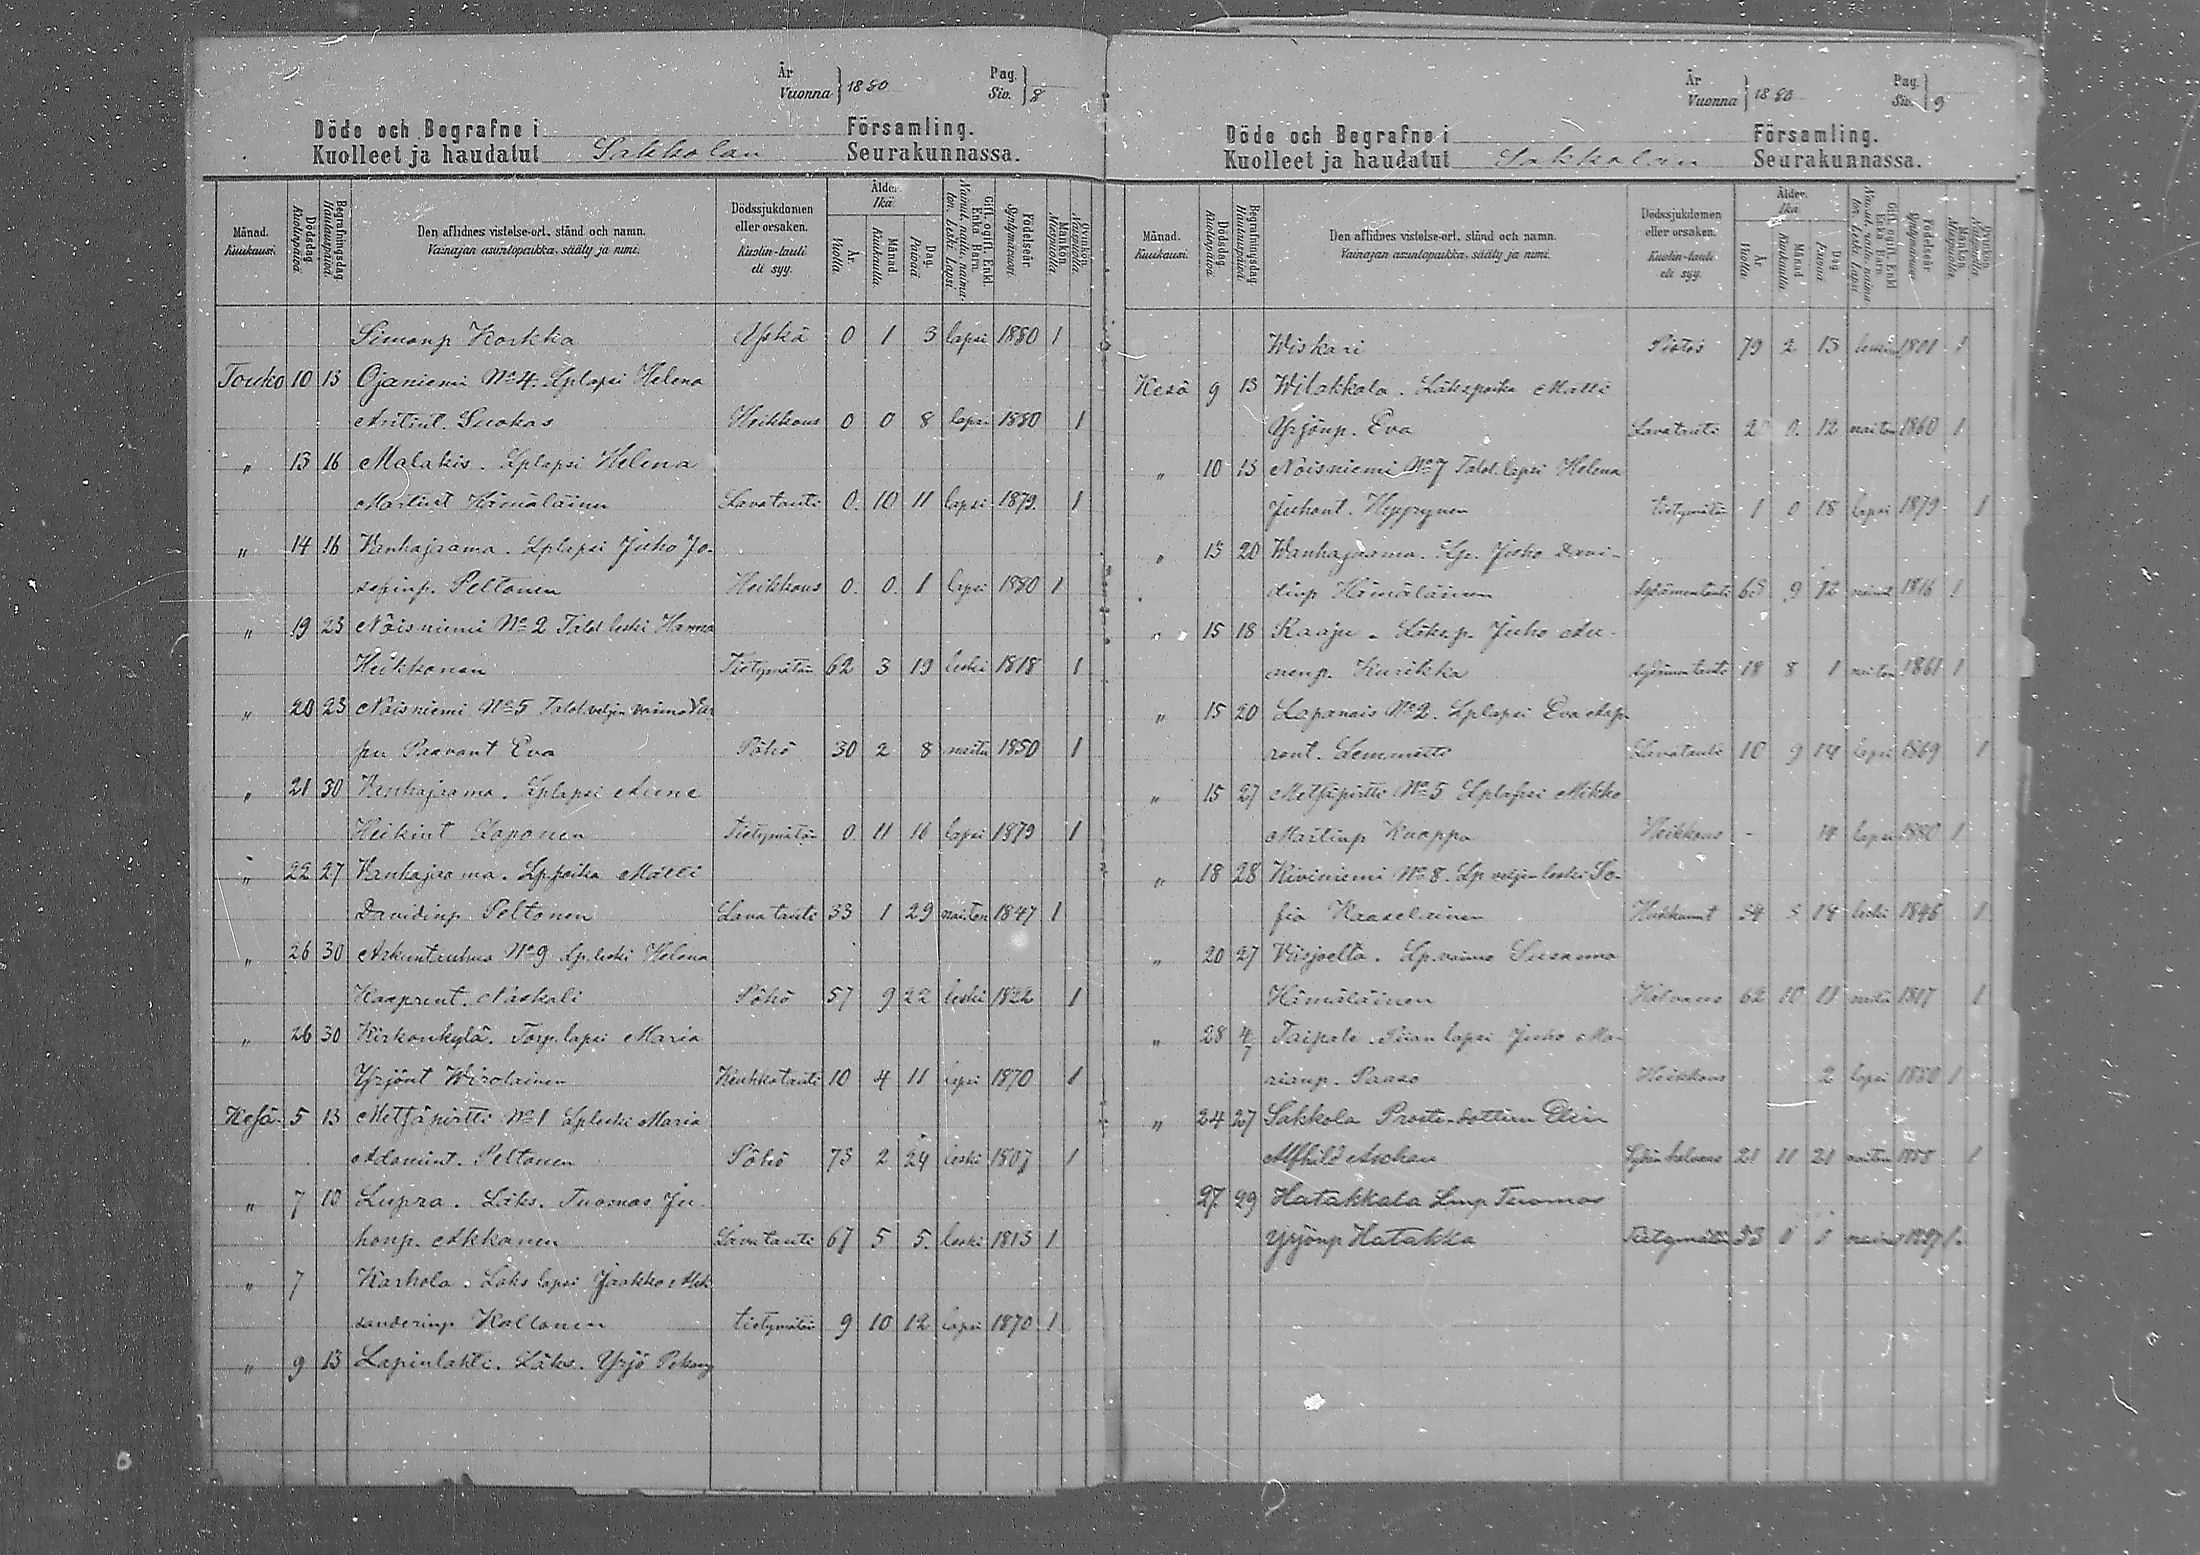 År
Vuonna 1880
Pag.
Siv. 8
Döde och Begrafne i Församling.
Kuolleet ja haudatut Sakkolan Seurakunnassa.
Månad. Kuukausi. Dödsdag Kuolinpäivä Begrafningsdag Hautauspäivä Den aflidnes vistelse-ort, stånd och namn. Vainajan asuntopaikka, sääty ja nimi. Dödssjukdomen eller orsaken. Kuolin-tauti eli syy. Ålder. Ikä År Vuotta Månad. Kuukautta Dag. Päivää Gift, ogift, Enkl. Enka Barn. Födelseår. Syntymävuosi. Mankön. Miespuolia Qvinkön.
Simonp Korkka 0 1 3 lapsi 1880 1
Touko 10 13 Ojaniemi No 4. Lplapsi Helena
Antint. Suokas Heikkous 0 0 8 lapsi 1880 1
" 13 16 Malakis. Lplapsi Helena
Martint Hämäläinen Lavatauti 0 10 11 lapsi 1879 1
" 14 16 Wanhajaama. Lplapsi Juho Jo-
sepinp. Peltonen Heikkous 0 0 1 lapsi 1880 1
" 19 23 Noisniemi No 2 Talol. leski Hanna
Heikkonen Tietymätöin 62 3 19 leski 1818 1
" 20 23 Noisniemi No 5 Talol. veljen vaimo
Paavont Eva Pöhö 30 2 8 naitu 1850 1
" 21 30 Wanhajaama. Lplapsi Anna
Heikint Paponen Tietymätöin 0 11 16 lapsi 1879 1
" 22 27 Wanhajaama. Lp. poika Matti
Davidinp Peltonen Lavatauti 33 1 29 naiton 1847 1
" 26 30 No 9 Lp. leski Helena
Kasprint. Naskali Pöhö 57 9 22 leski 1822 1
" 26 30 Kirkonkylä. Torp. lapsi Maria
Yrjönt Wirolainen Keuhkotauti 10 4 11 lapsi 1870 1
Kesä 5 13 Metsäpirtti No 1 Lpleski Maria
Adamint. Peltonen Pöhö 73 2 24 leski 1807 1
" 7 13 Lupra. Läks. Tuomas Ju-
honp. Akkanen Lavatauti 67 5 5 leski 1813 1
" 7 Karhola. Läks lapsi Jaakko Alek
sanderinp Kaltonen tietymätöin 9 10 12 lapsi 1870 1
" 9 13 Lapinlahti. Läks. Yrjö Pekanp
År
Vuonna 1880
Pag.
Siv. 9
Döde och Begrafne i Församling.
Kuolleet ja haudatut Sakkolan Seurakunnassa.
Månad. Kuukausi. Dödsdag Kuolinpäivä Begrafningsdag Hautauspäivä Den aflidnes vistelse-ort, stånd och namn. Vainajan asuntopaikka, sääty ja nimi. Dödssjukdomen eller orsaken. Kuolin-tauti eli syy. Ålder. Ikä År Vuotta Månad. Kuukautta Dag. Päivää Gift, ogift, Enkl. Enka Barn. Födelseår. Syntymävuosi. Mankön. Miespuolia Qvinkön.
Wiskari Pistos 79 2 13 leski 1801 1
Kesä 9 13 Wilakkala. Läkspoika Matti
Yrjönp. Eva Lavatauti 20 0 12 naiton 1860 1
" 10 13 Noisniemi No 7 Talol. lapsi Helena
Juhont. Hyppynen tietymätöin 1 0 18 lapsi 1879 1
" 13 20 Wanhajaama. Lp. Juho Davi-
dinp Hämäläinen sydämentauti 9 12 1816 1
" 15 18 Kaaju. Läks p. Juho
Kurikka 18 8 1 naiton 1861 1
" 15 20 Lapanais No 2. Lplapsi Eva Kasp
rint. Lemmetti Lavatauti 10 9 14 lapsi 1869 1
" 15 27 Metsäpirtti No 5 Lplapsi Mikko
Martinp Knappa Heikkous - lapsi 1880 1
" 18 28 Kiviniemi No 8. Lp veljen leski So-
fia Kaaselainen leski 1846 1
" 20 27 Wiisjoelta. Lp. vaimo Susanna
Hämäläinen Halvaus 62 naitu 1817 1
" 28 4/7 Taipale. Piian lapsi Juho Ma-
rianp. Paaso Heikkous 2 lapsi 1880 1
" 24 27 Sakkola Prosten dottern Elin
Alfhild Aschan 21 11 21 naiton 1858 1
27 29 Hatakkala Lmp Tuomas
Yrjönp Hatakka Tietymätöin